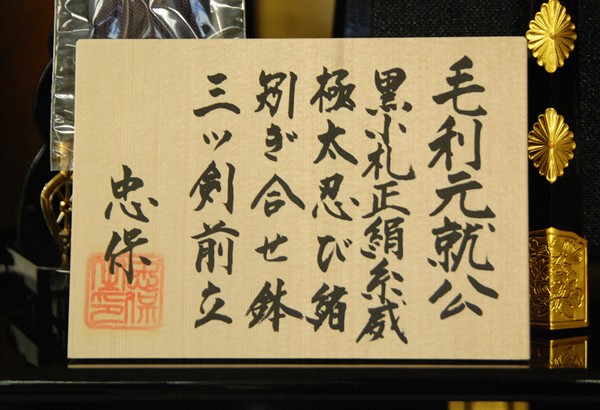 毛利元就公
黒小札正絹糸威
極太忍び緒
矧ぎ合せ鉢
三ツ剣前立
忠保